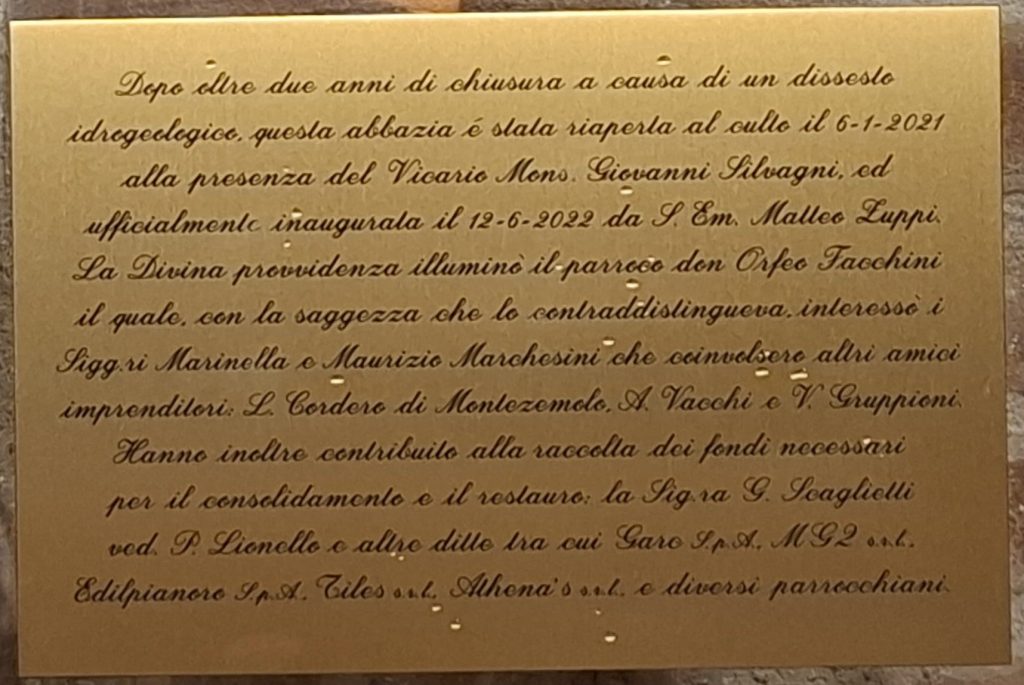 Dopo oltre due anni di chiusura a causa di un dissesto
idrogeologico, questa abbazia é stata riaperta al culto il 6-1-2021
alla presenza del Vicario Mons. Giovanni Silvagni, ed
ufficialmente inaugurata il 12-6-2022 da S. Em. Matteo Zuppi.
La Divina provvidenza illuminò il parroco don Orfeo Facchini
il quale, con la saggezza che lo contraddistingueva, interessò i
Sigg.ri Marinella e Maurizio Marchesini che coinvolsero altri amici
imprenditori: L. Cordero di Montezemolo, A. Vacchi e V. Gruppioni.
Hanno inoltre contribuito alla raccolta dei fondi necessari
per il consolidamento e il restauro: la Sig.ra G. Scaglietti
ved. P. Lionello e altre ditte tra cui Garc S.p.A., MG2 s.r.l.,
Edilpianoro S.p.A., Tiles s.r.l., Athena's s.r.l., e diversi parrocchiani.